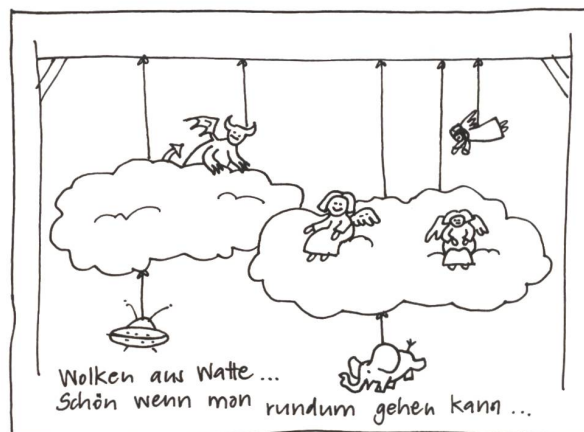 Wolken aus Watte...
Schön wenn man rundum gehen kann...